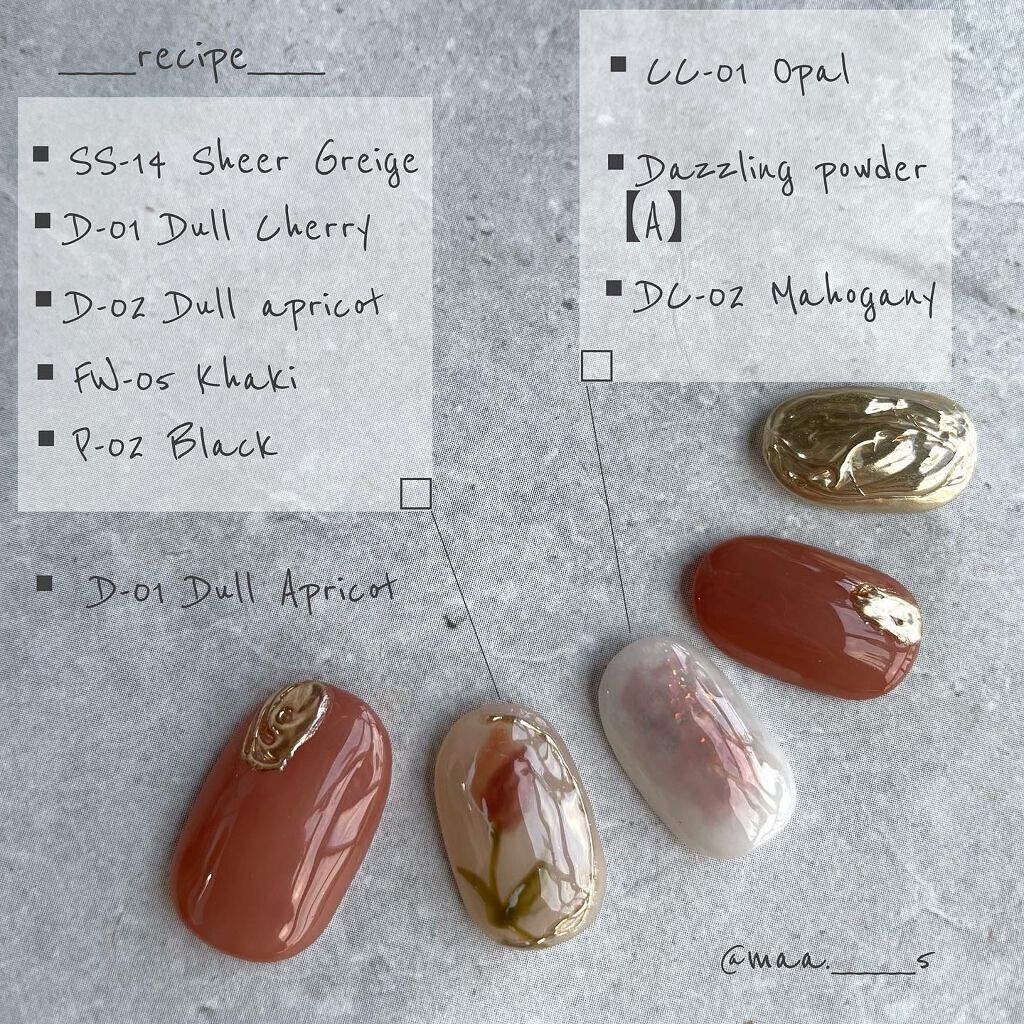 ____recipe____
■ SS-14 Sheer Greige
■ D-01 Dull Cherry
■ D-02 Dull apricot
■ FW-05 Khaki
■ P-02 Black
■ D-01 Dull Apricot
■ CC-01 Opal
■ Dazzling powder
【A】
■ DC-02 Mahogany
@maa._____s